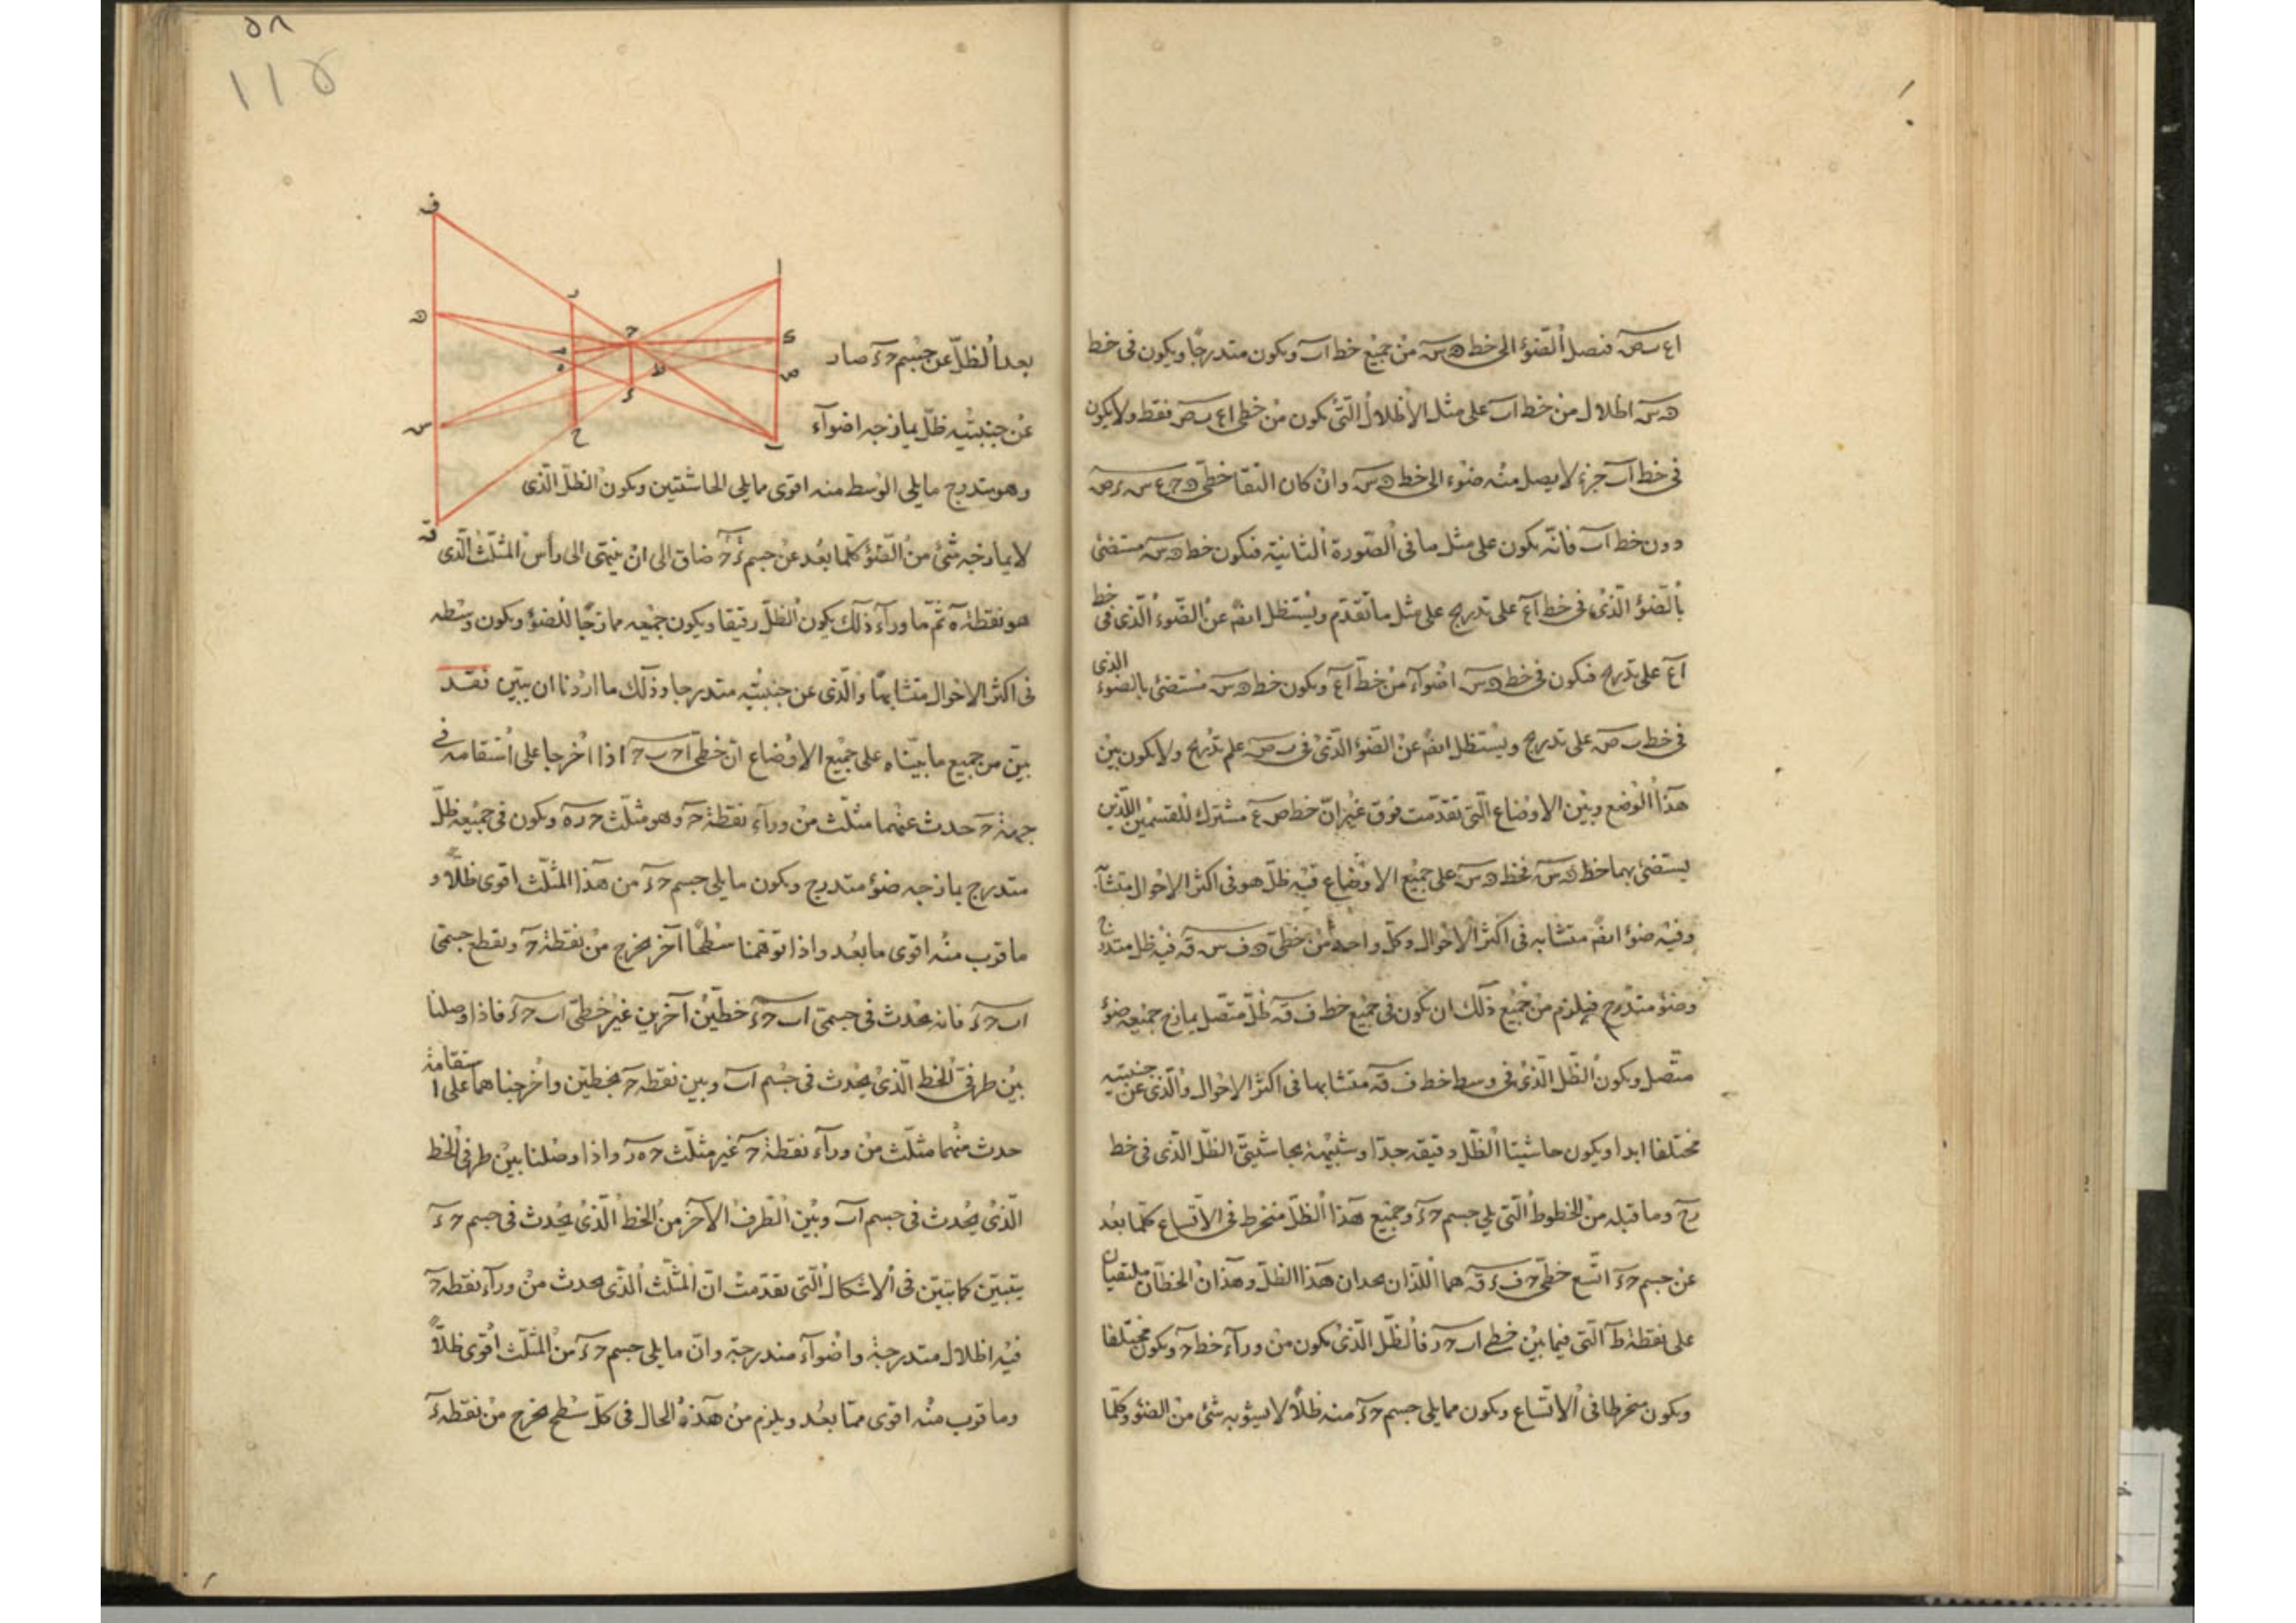 اع ب ص فيصل الضوء الى خط ه س من جميع خط اب ويكون متدرجا ويكون فى خط
ه س اظلال من خط اب على مثل الاظلال التى تكون من خطى اع ب ص فقط ولا يكون
فى خط اب جزء لا يصل منه ضوء الى خط ه س وان كان التقا خطى ه ح ع س ر ص
دون خط اب فانه يكون على مثل ما فى الصورة الثانية فيكون خط ه س مستضئ
بالضوء الذى فى خط اع على تدريج على مثل ما تقدم ويستظل ايضا عن الضوء الذى فى خط
اع على تدريج فيكون فى خط ه س اضواء من خط اع ويكون خط ه س مستضئ بالضوء الذى
فى خط ب ص على تدريج ويستظل ايضا عن الضوء الذى فى ب ص على تدريج ولا يكون بين
هذا الوضع وبين الاوضاع التى تقدمت فرق غير ان خط ص ع مشترك للقسمين اللذين
يستضئ بهما خط ه س فخط ه س على جميع الاوضاع فيه ظل هو فى اكثر الاحوال متشابه
وفيه ضوء ايضا متشابه فى اكثر الاحوال وكل واحد من خطى ه ف س ق فيه ظل متدرج
وضوء متدرج فيلزم من جميع ذلك ان يكون فى جميع خط ف ق ظل متصل يمازج جميعه ضوء
متصل ويكون الظل الذى فى وسط خط ف ق متشابها فى اكثر الاحوال والذى عن جنبتيه
مختلفا ابدا ويكون حاشيتا الظل رقيقة جدا وشبيهة بحاشيتى الظل الذى فى خط
رح وما قبله من الخطوط التى يلى جسم ح ء وجميع هذا الظل منخرط فى الاتساع كلما بعد
عن جسم ح ء اتسع خطى ح ف ء ق هما اللذان يحدان هذا الظل وهذان الخطان ملتقيان
على نقطة ط التى فيما بين خطى اب ح ء فالظل الذى يكون من وراء خط ح ء يكون مختلفا
ويكون منخرطا فى الاتساع ويكون مما يلى جسم ح ء منه ظلا لا يشوبه شئ من الضوء وكلما
٥٨
١١٥
ف
ا
ر
ه
ح
ك
ص
ط
ء
س
ح
ب
ق
بعد الظل عن جسم ح ء صار
عن جنبتيه ظل يمازجه اضواء
وهو متدرج ما يلى الوسط منه اقوى مما يلى الحاشيتين ويكون الظل الذى
لا يمازجه شئ من الضوء كلما بعد عن جسم ء ح ضاق الى ان ينتهى الى رأس المثلث الذى
هو نقطة ه ثم ما وراء ذلك يكون الظل رقيقا ويكون جميعه ممازجا للضوء ويكون وسطه
فى اكثر الاحوال متشابها والذى عن جنبتيه متدرجا وذلك ما اردنا ان يبين فقد
بين من جميع ما بيناه على جميع الاوضاع ان خطى اح ب ح اذا اخرجا على استقامة فى
جهة ح حدث عنهما مثلث من وراء نقطة ح وهو مثلث ح ر ه ويكون فى جميعه ظل
متدرج يمازجه ضوء متدرج ويكون ما يلى جسم ح ء من هذا المثلث اقوى ظلا و
ما قرب منه اقوى مما بعد واذا توهمنا سطحا آخر يخرج من نقطة ح ويقطع جسمى
اب ح ء فانه يحدث فى جسمى اب ح ء خطين آخرين غير خطى اب ح ء فاذا وصلنا
بين طرفى الخط الذى يحدث فى جسم اب وبين نقطة ح بخطين واخرجناهما على استقامة
حدث منهما مثلث من وراء نقطة ح غير مثلث ح ه ر واذا وصلنا بين طرفى الخط
الذى يحدث فى جسم اب وبين الطرف الآخر من الخط الذى يحدث فى جسم ح ء
يتبين كما تبين فى الاشكال التى تقدمت ان المثلث الذى يحدث من وراء نقطة ح
فيه اظلال متدرجة واضواء متدرجة وان ما يلى جسم ح ء من المثلث اقوى ظلا
وما قرب منه اقوى مما بعد ويلزم من هذه الحال فى كل سطح يخرج من نقطة ء